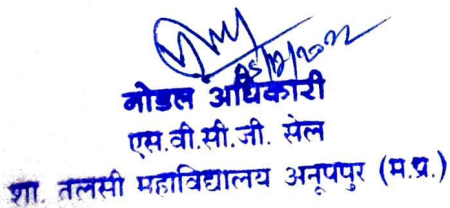 नोडल अधिकारी
एस.वी.सी.जी. सेल
शा. तलसी महाविद्यालय अनूपपुर (म.प्र.)